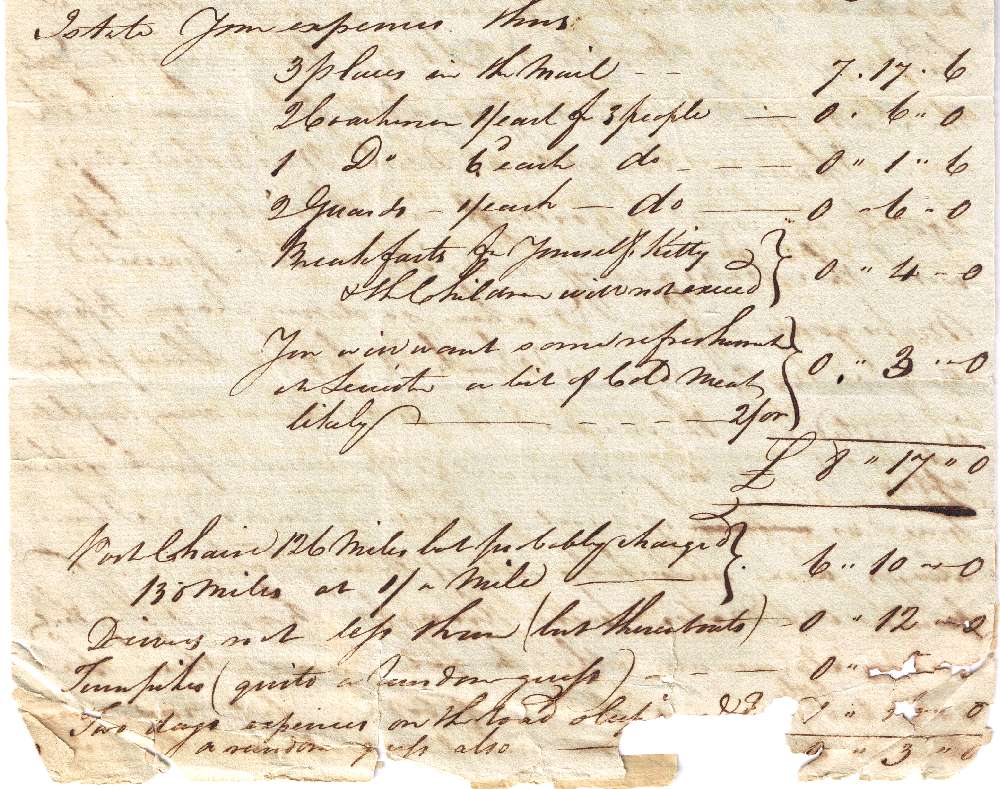 I state Your expences thus:
3 places in the Mail - - 7 . 17 . 6
2 Coachmen 1/ each for 3 people — 0 . 6 " 0
1 Do 6d each do - — — 0 " 1 " 6
2 Guards - 1/ each — do — 0 " 6 " 0
Breakfasts for Yourself Kitty
& the Children will not exceed } 0 " 4 " 0
You will want some refreshment
at Leicester a bit of Cold Meat } 0 " 3 " 0
likely — - - - - 2/ or
£ 8 " 17 " 0
Post Chaise 126 Miles but probably charged
130 Miles at 1/ a Mile — } 6 " 10 " 0
Drivers not less than (but thereabouts) - 0 " 12 "
Turnpikes (quite a random guess) - - — 0 "
Two days expences on the road &c 0
a random guess also — 9 " 3 " 0